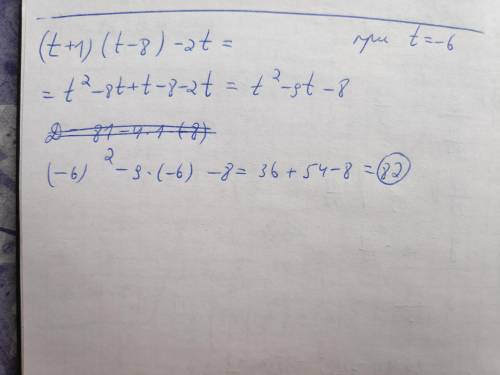 (t+1)(t-8)-2t= при t=-6
= t²-8t+t-8-2t = t²-9t-8
D = 81-4·1·(-8)
(-6)²-9·(-6)-8= 36+54-8=82